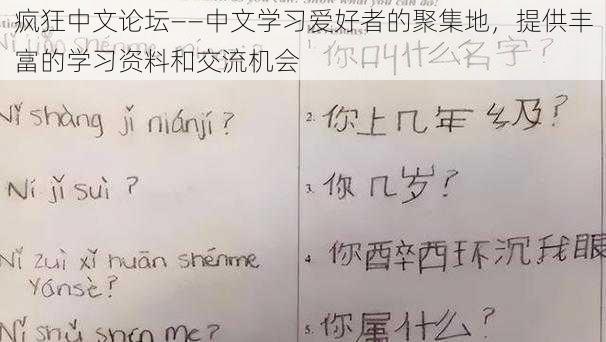 疯狂中文论坛——中文学习爱好者的聚集地，提供丰
富的学习资料和交流机会
你叫什么名字？
Nǐ shàng jǐ niánjí?
2. 你上几年级?
Ní jǐ suì ?
3. 你几岁?
Nǐ zuì xǐ huān shénme
Yánsè?
4. 你醉西环沉我眼
Nǐ shǔ shén me?
5. 你属什么?